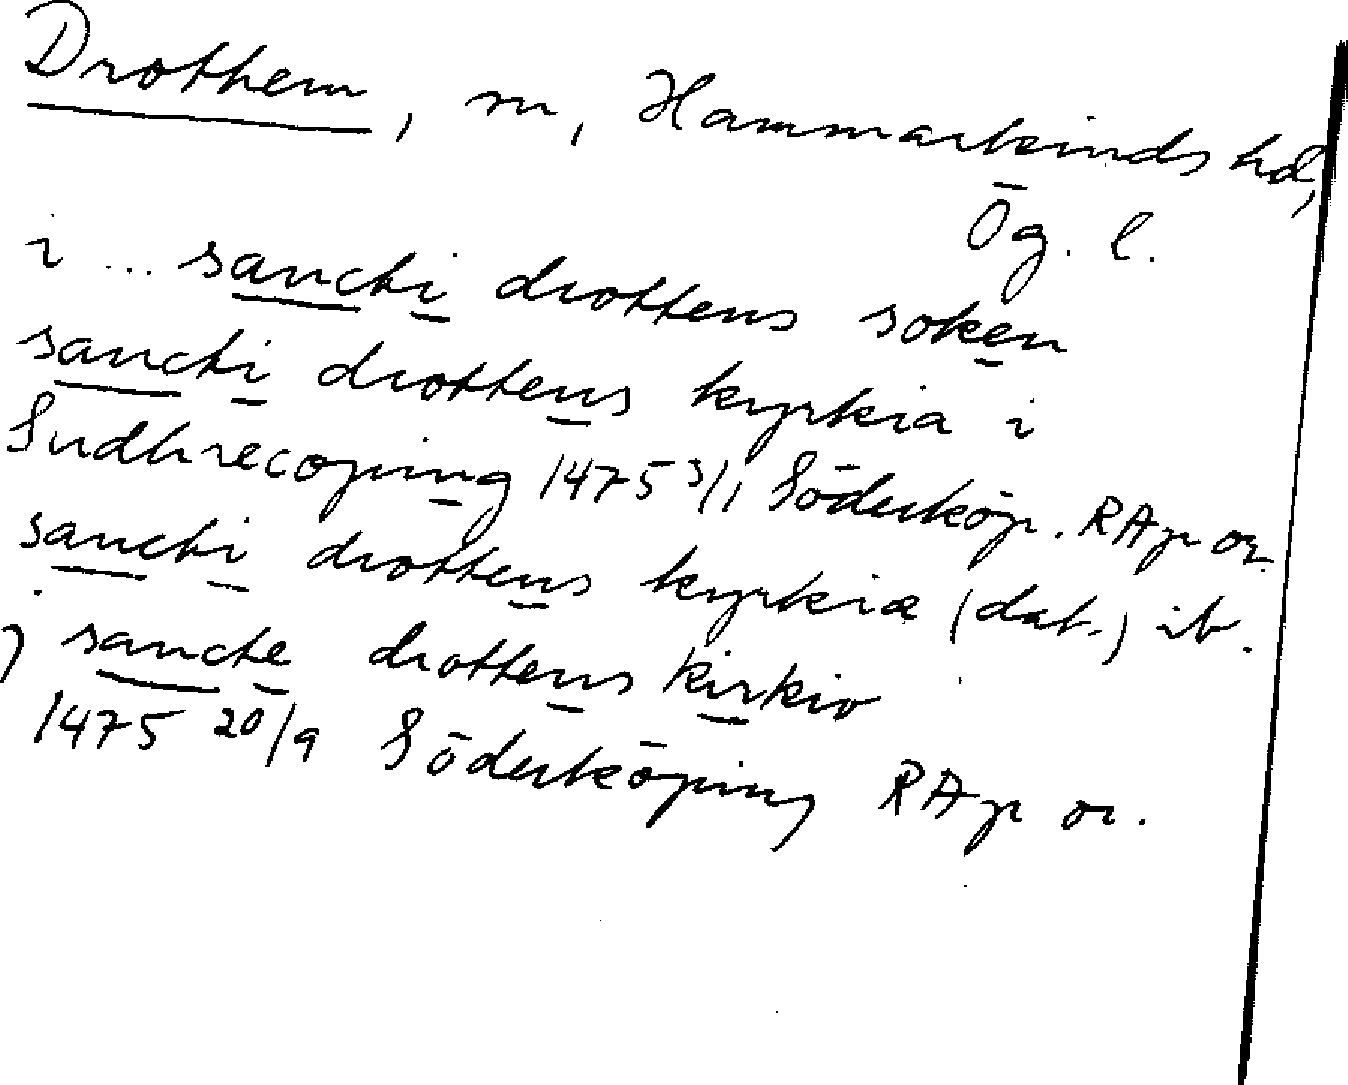 Drothem, sn, Hammarkinds hd,
Ög. l.
i ... sancti drottens soken
sancti drottens kyrkia i
Sudhrecoping 1475 3/1 Söderköp. RAp or.
sancti drottens kyrkiæ (dat.) ib.
j sancte drottens kirkio
1475 20/9 Söderköping RAp or.